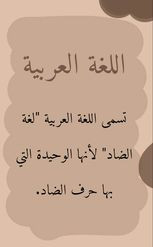 اللغة العربية
تسمى اللغة العربية "لغة
الضاد" لأنها الوحيدة التي
بها حرف الضاد.